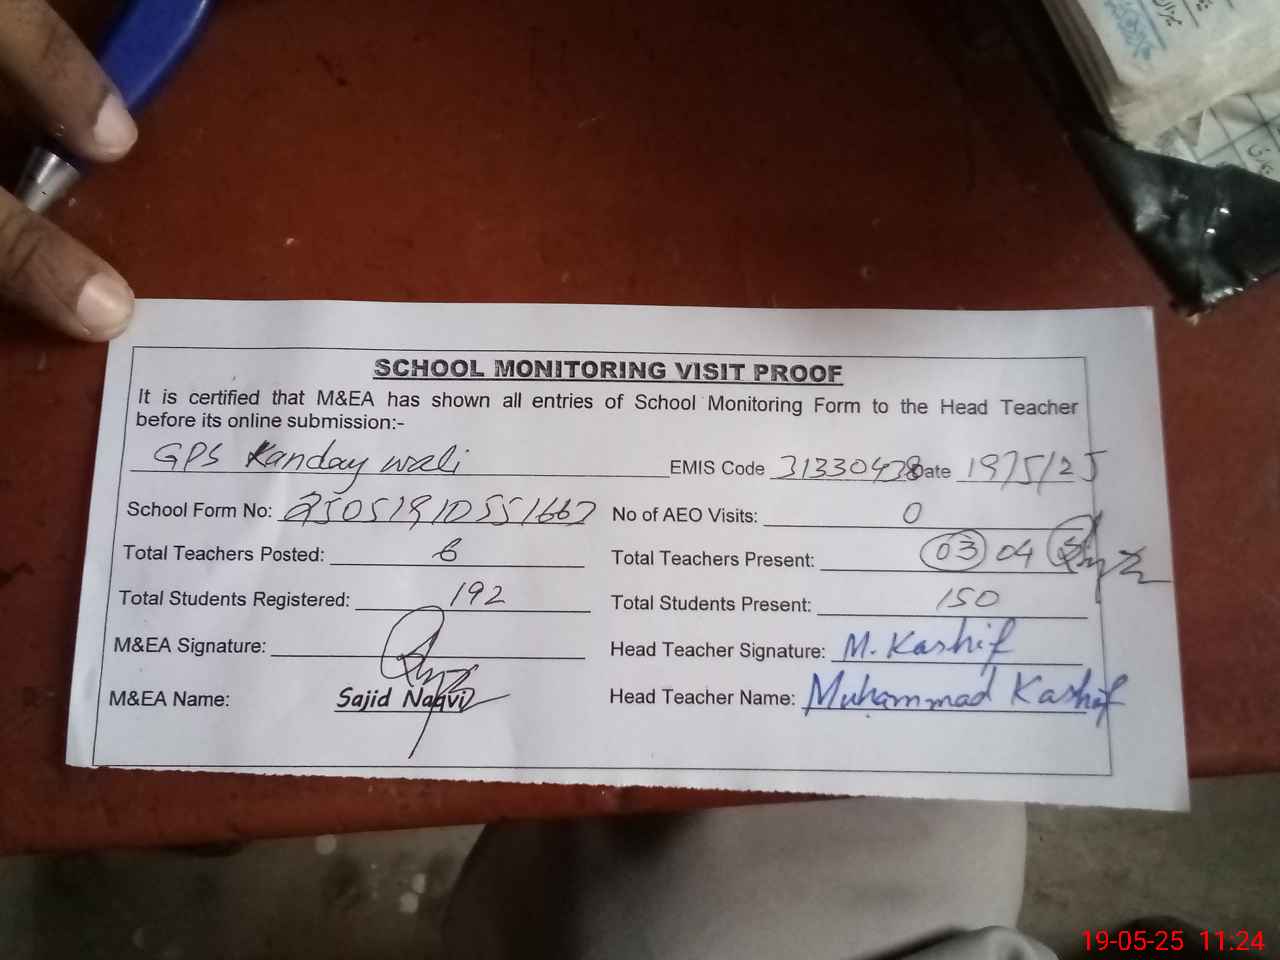 SCHOOL MONITORING VISIT PROOF
It is certified that M&EA has shown all entries of School Monitoring Form to the Head Teacher
before its online submission:-
GPS Kanday wali EMIS Code 31330438 Date 19/5/25
School Form No: 25051910551667 No of AEO Visits: 0
Total Teachers Posted: 6 Total Teachers Present: 03 04
Total Students Registered: 192 Total Students Present: 150
M&EA Signature: Head Teacher Signature: M. Kashif
M&EA Name: Sajid Naqvi Head Teacher Name: Muhammad Kashif
19-05-25 11:24